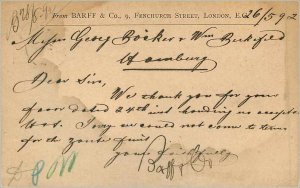 From BARFF & Co., 9, FENCHURCH STREET, LONDON, E.C. 26/5 92
Messrs Georg Böcker & Wm
Hamburg
Dear Sirs,
We thank you for your
favor dated 24th inst handing us
I say we could not come to terms
for the
yours faithfully
Barff & Co